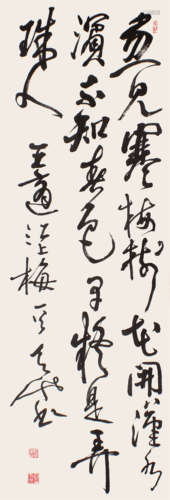 忽見寒梅樹花開漢水
濱不知春色早疑是弄
珠人 王適江上梅